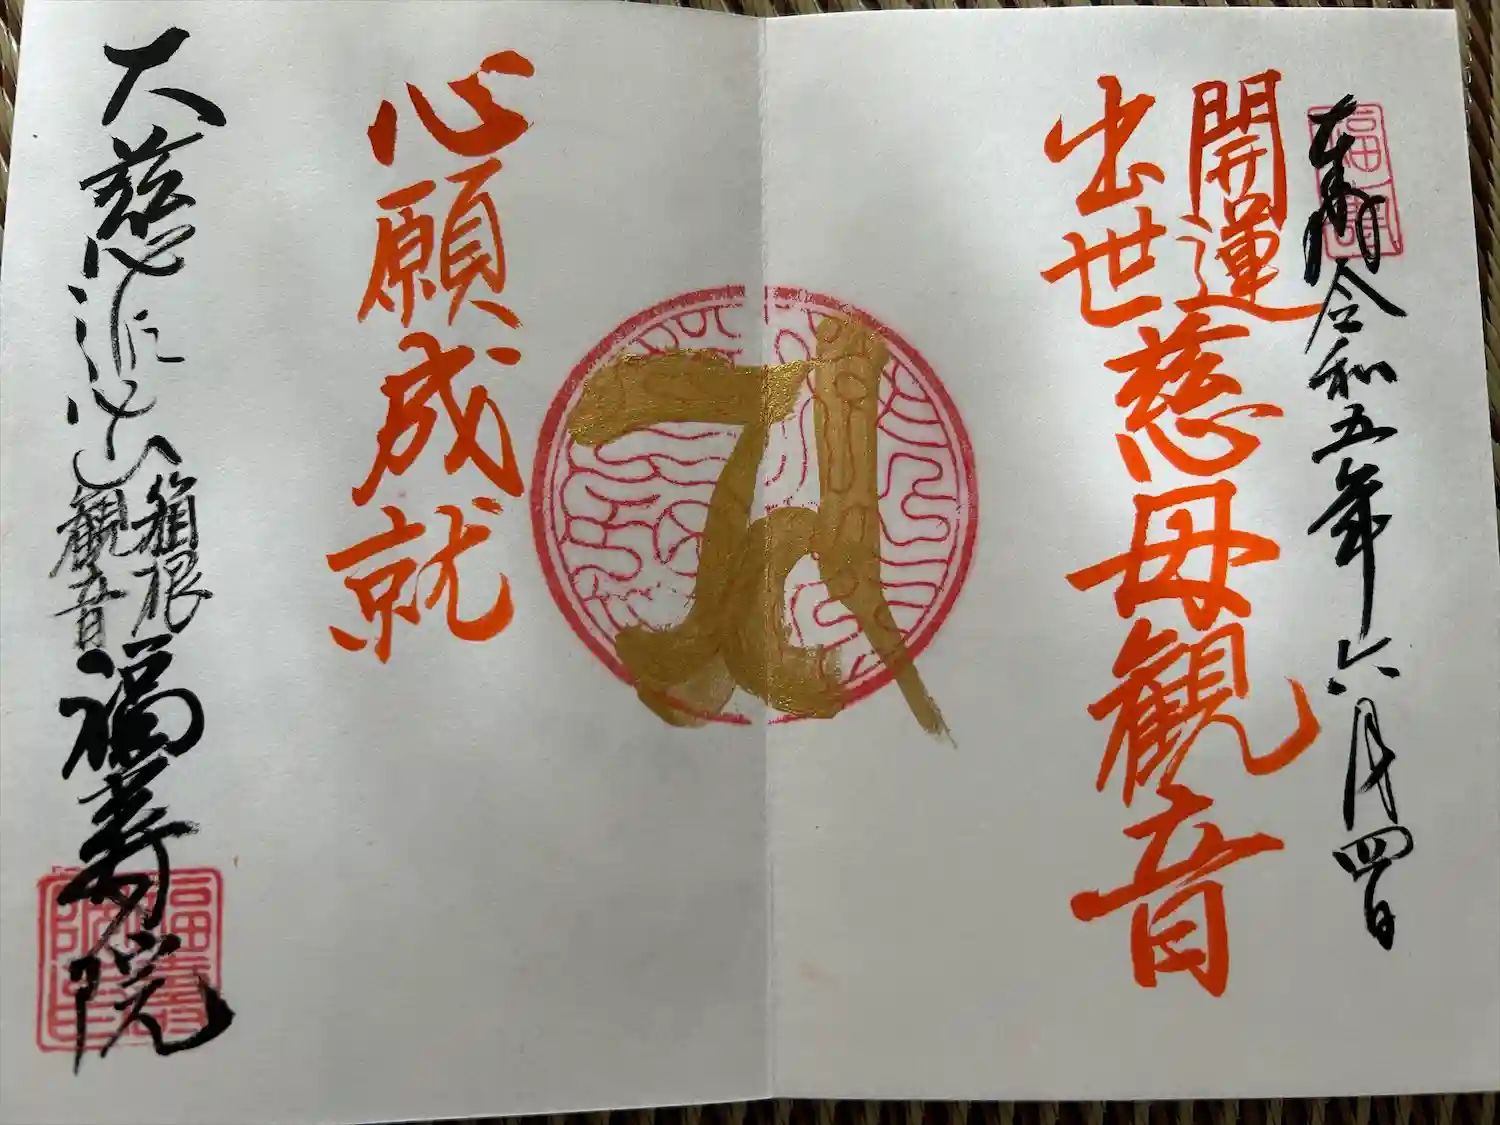 奉拝 令和五年六月四日
開運
出世
慈母観音
心願成就
大慈悲山
箱根
観音
福寿院